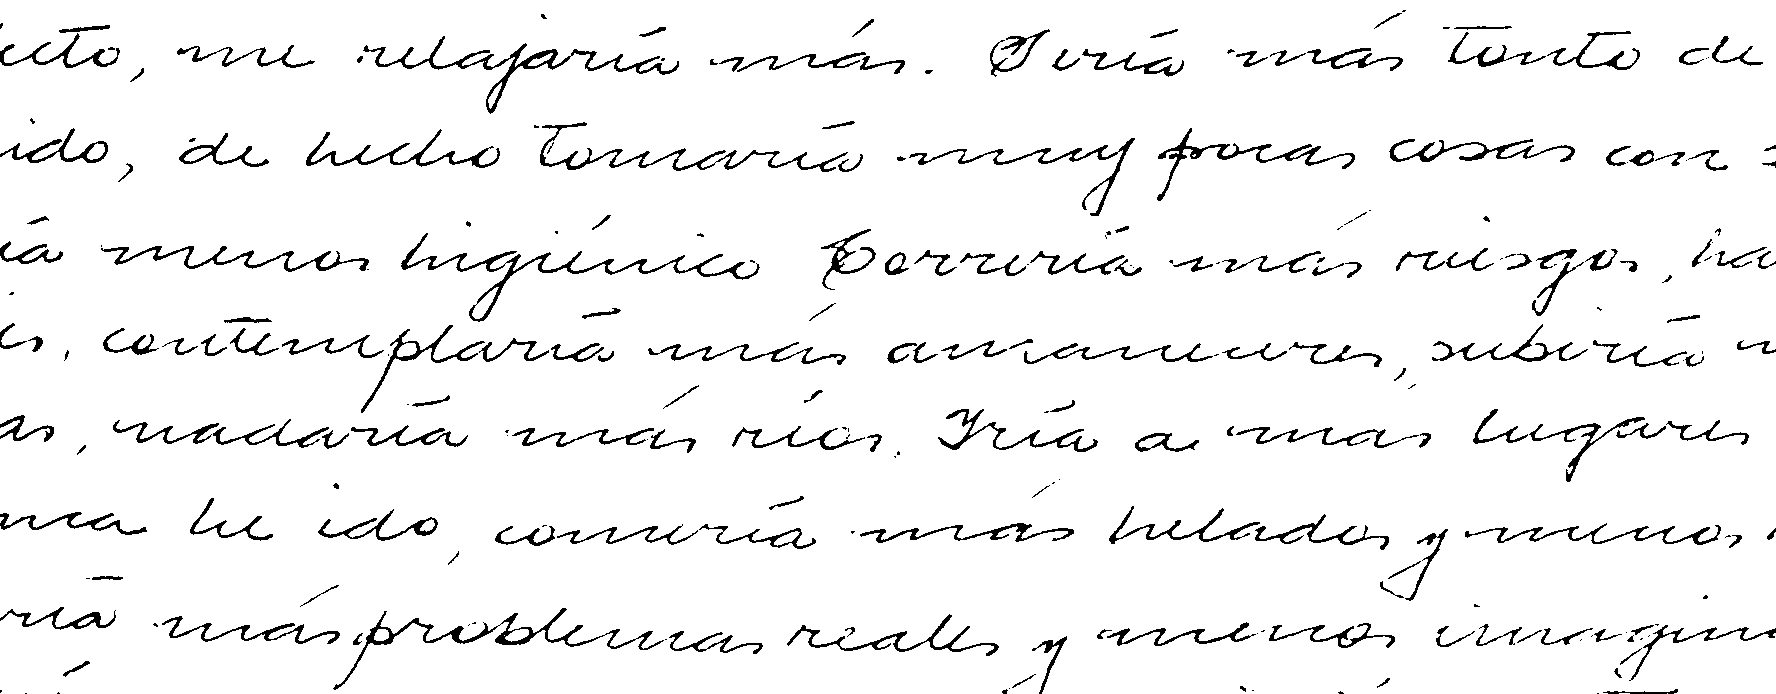 ecto, me relajaría más. Sería más tonto de
ido, de hecho tomaría muy pocas cosas con s
ía menos higiénico Correría más riesgos, ha
es, contemplaría más amaneceres, subiría m
as, nadaría más ríos. Iría a mas lugares
nca he ido, comería más helados y menos
ría más problemas reales y menos imagina